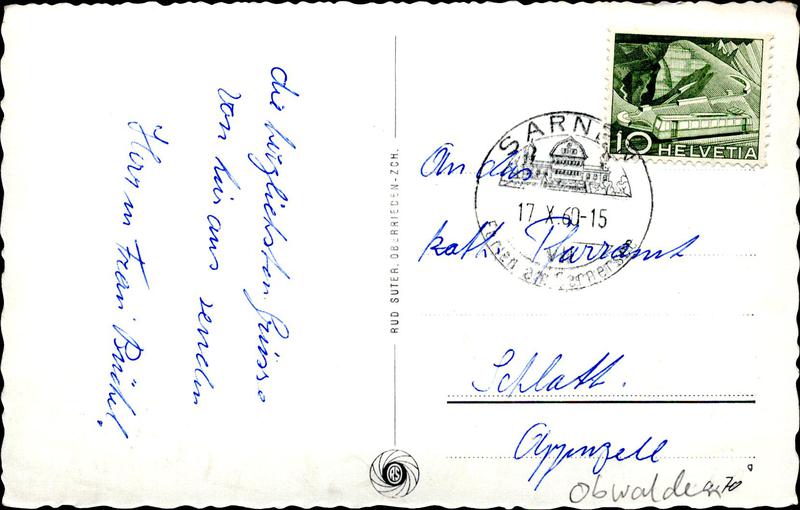 die herzlichsten Grüsse
von hier aus senden
Herr u Frau Büchel.
RUD SUTER, OBERRIEDEN-ZCH.
RS
10 HELVETIA
SARNEN
17.X.60-15
Ferien am Sarnersee
An das
kath. Pfarramt
Schlatt.
Appenzell
Obwalden
70